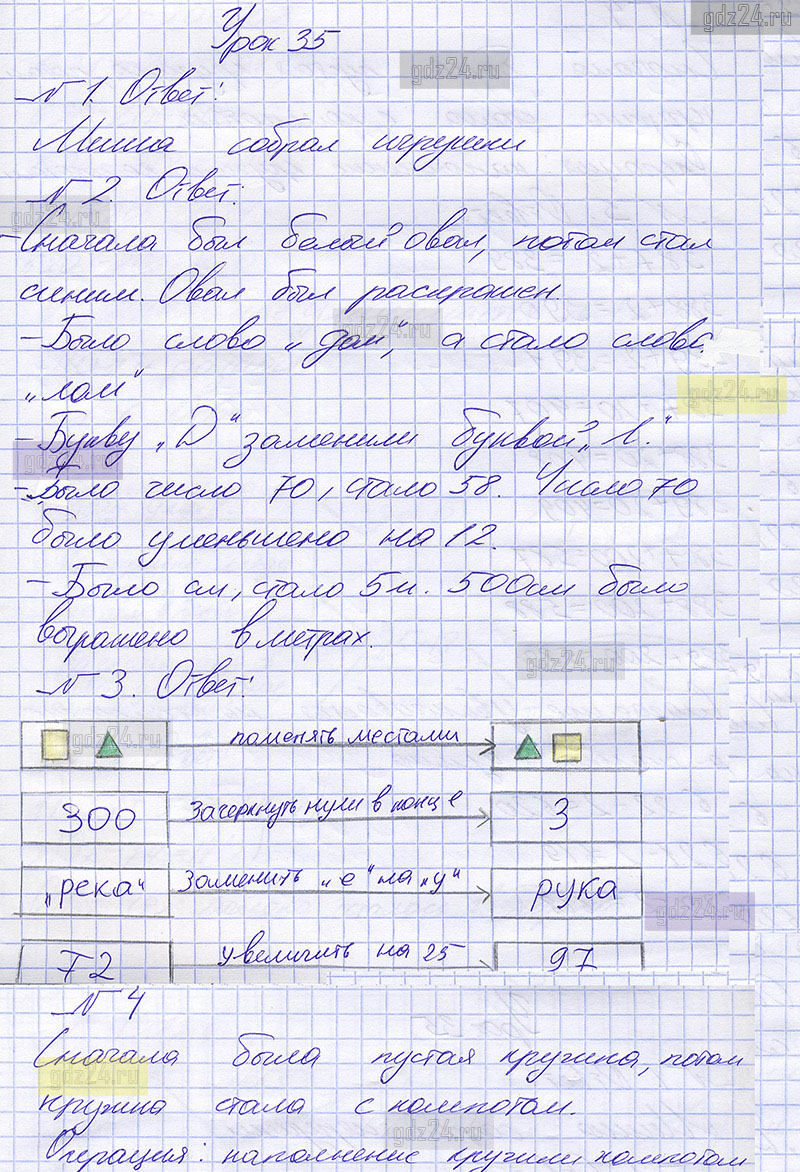 Урок 35
gdz24.ru
gdz24.ru
№ 1. Ответ:
Миша собрал игрушки
№ 2. Ответ:
gdz24.ru
- Сначала был белый овал, потом стал
синим. Овал был раскрашен.
gdz24.ru
- Было слово „дом“, а стало слово
„лом“
gdz24.ru
- Букву „D“ заменили буквой „л.“
gdz24.ru
- Было число 70, стало 58. Число 70
было уменьшено на 12.
- Было см, стало 5м. 500см было
выражено в метрах.
gdz24.ru
№ 3. Ответ:
gdz24.ru
поменять местами
300 Зачеркнуть нули в конце 3
„река“ Заменить „е“ на „у“ рука
gdz24.ru
72 увеличить на 25 97
№ 4
Сначала была пустая кружка, потом
gdz24.ru
кружка стала с компотом.
gdz24.ru
Операция: наполнение кружки компотом